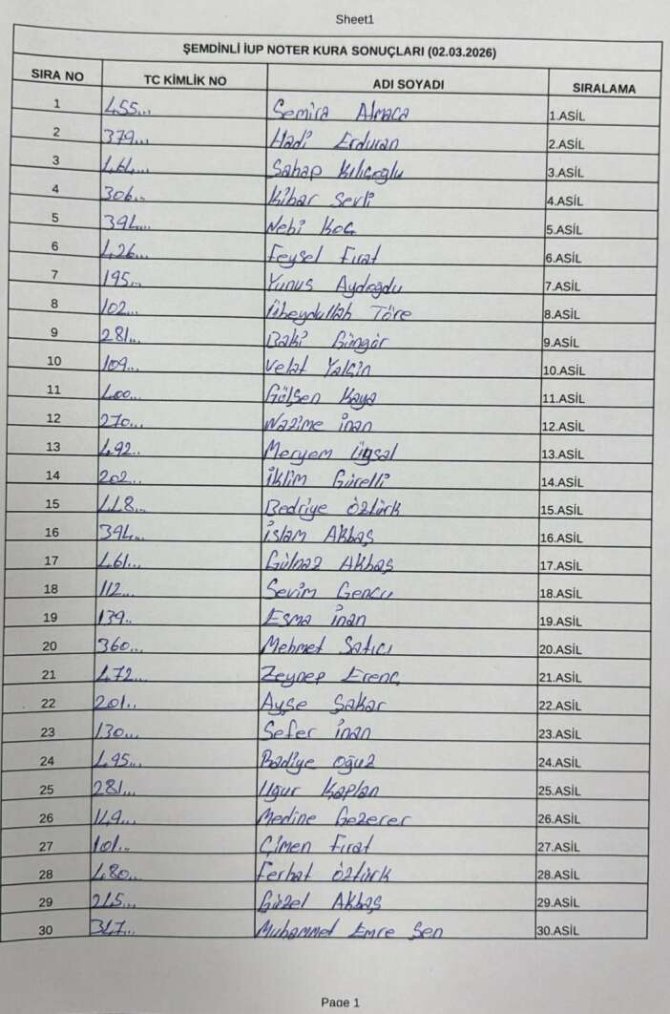 Sheet1
ŞEMDİNLİ İUP NOTER KURA SONUÇLARI (02.03.2026)
SIRA NO TC KİMLİK NO ADI SOYADI SIRALAMA
1 455... Semira Almaca 1.ASİL
2 379... Hadi Erduran 2.ASİL
3 461... Sahap Kılıçoğlu 3.ASİL
4 306... Kibar Sevli 4.ASİL
5 394... Nebi Koç 5.ASİL
6 426... Feysel Fırat 6.ASİL
7 195... Yunus Aydoğdu 7.ASİL
8 102... Übeydullah Töre 8.ASİL
9 281... Baki Güngör 9.ASİL
10 109... Velat Yalçin 10.ASİL
11 400... Gülşen Kaya 11.ASİL
12 270... Nazime inan 12.ASİL
13 492... Meryem Uysal 13.ASİL
14 202... İklim Gürelli 14.ASİL
15 448... Bedriye öztürk 15.ASİL
16 394... İslam Akbaş 16.ASİL
17 461... Gülnaz Akbaş 17.ASİL
18 112... Sevim Gencu 18.ASİL
19 139.. Esma inan 19.ASİL
20 360... Mehmet Satıcı 20.ASİL
21 472... Zeynep Erenç 21.ASİL
22 201.. Ayşe Şakar 22.ASİL
23 130... Sefer inan 23.ASİL
24 495... Badiye oğuz 24.ASİL
25 281... Uğur Kaplan 25.ASİL
26 149... Medine Gezerer 26.ASİL
27 101... Çimen Fırat 27.ASİL
28 480... Ferhat öztürk 28.ASİL
29 245... Güzel Akbaş 29.ASİL
30 347... Muhammet Emre Şen 30.ASİL
Page 1